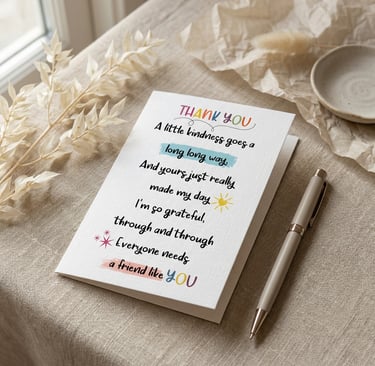 THANK YOU
A little kindness goes a
long long way.
And yours just really
made my day
I'm so grateful,
through and through
Everyone needs
a friend like YOU